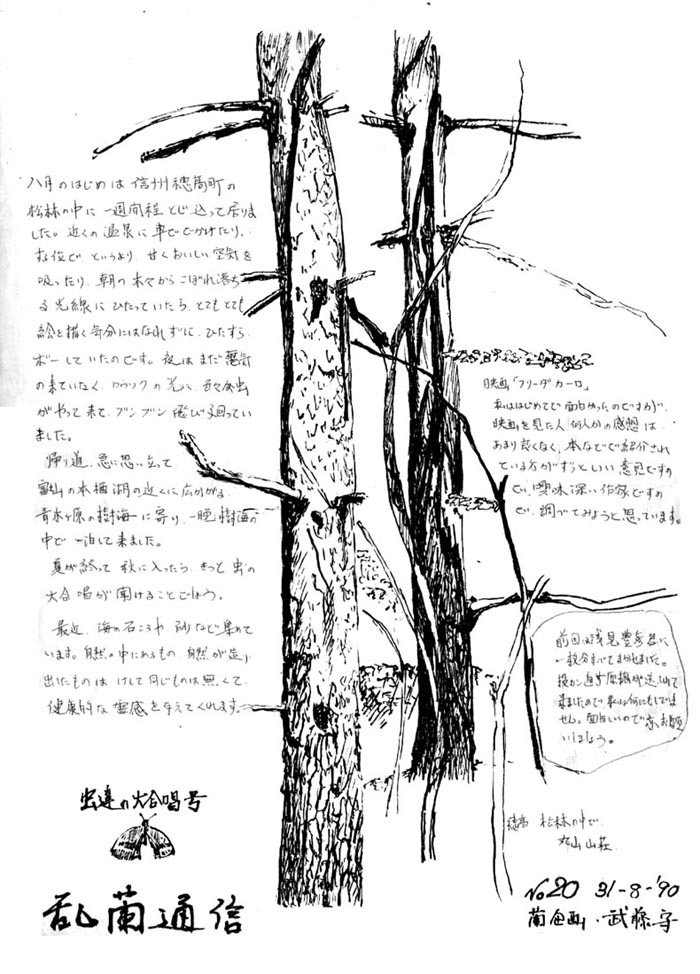 八月のはじめは信州穂高町の
松林の中に一週間程とじ込って居りま
した。近くの温泉に車ででかけたり、
というより、甘くおいしい空気を
吸ったり、朝の木々からこぼれ落ち
る光線にひたっていたら、とてもとても
絵を描く気分にはなれずに、ひたすら
ボーしていたのです。夜はまだ電気
の来ていなく、の光に、虫
がやって来て、ブンブン飛び廻ってい
ました。
帰り道、急に思い立って
富山の本栖湖の近くに広がる
青木ヶ原の樹海に寄り、一晩樹海の
中で一泊して来ました。
夏が終って秋に入ったら、きっと虫の
大合唱が聞けることでしょう。
最近、海の石ころや砂など集めて
います。自然の中にあるもの、自然が造り
出たものはけして同じものは無くて、
健康的な霊感を与えてくれます。
映画「フリーダ・カーロ」
私ははじめてで面白かったのですが、
映画を見た人何人かの感想は、
あまり良くなく、本などで紹介され
ている方がずっといい意見ですの
で、興味深い作家ですの
で、調べてみようと思っています。
前回は浅見豊参名に
一教分すべてまかせました。
原稿が送られて
来ましたので、私は何にもしていま
せん。面白いので、お願
いしましょう。
穂高 松林の中で
丸山山荘
虫達の大合唱号
乱蘭通信
No20 31-8-'90
蘭企画・武藤守